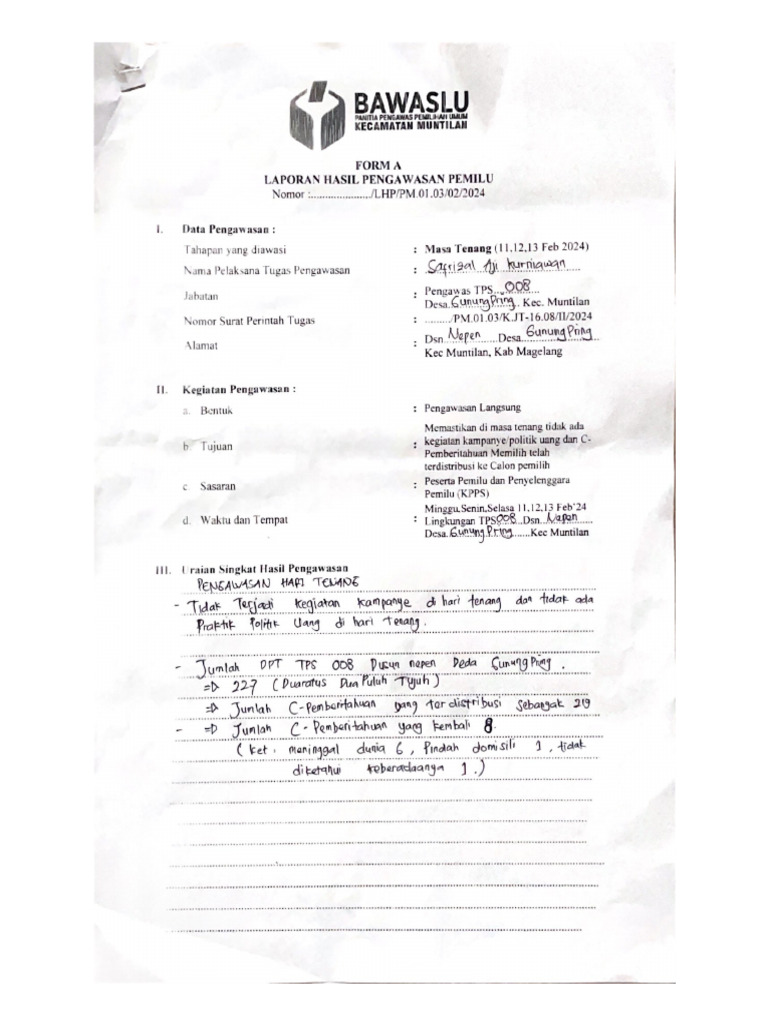 BAWASLU
PANITIA PENGAWAS PEMILIHAN UMUM
KECAMATAN MUNTILAN
FORM A
LAPORAN HASIL PENGAWASAN PEMILU
Nomor :...................../LHP/PM.01.03/02/2024
I. Data Pengawasan :
Tahapan yang diawasi : Masa Tenang (11,12,13 Feb 2024)
Nama Pelaksana Tugas Pengawasan : Safrizal Aji Kurniawan
Jabatan : Pengawas TPS...008
Desa.GunungPring. Kec. Muntilan
Nomor Surat Perintah Tugas : ........./PM.01.03/K.JT-16.08/II/2024
Alamat : Dsn.Nepen......Desa.GunungPring
Kec Muntilan, Kab Magelang
II. Kegiatan Pengawasan :
a. Bentuk : Pengawasan Langsung
b. Tujuan : Memastikan di masa tenang tidak ada
kegiatan kampanye/politik uang dan C-
Pemberitahuan Memilih telah
terdistribusi ke Calon pemilih
c. Sasaran : Peserta Pemilu dan Penyelenggara
Pemilu (KPPS)
d. Waktu dan Tempat : Minggu,Senin,Selasa 11,12,13 Feb'24
Lingkungan TPS008...Dsn..Nepen
Desa.Gunung.Pring......Kec Muntilan
III. Uraian Singkat Hasil Pengawasan
PENGAWASAN HARI TENANG
- Tidak Terjadi kegiatan kampanye di hari tenang dan tidak ada
Praktik Politik Uang di hari Tenang.
- Jumlah DPT TPS 008 Dusun nepen Deda GunungPring.
=> 227 (Duaratus Dua Puluh Tujuh)
=> Jumlah C-Pemberitahuan yang terdistribusi Sebanyak 219
- => Jumlah C-Pemberitahuan yang kembali 8
( ket : meninggal dunia 6, Pindah domisili 1, tidak
diketahui keberadaanya 1.)